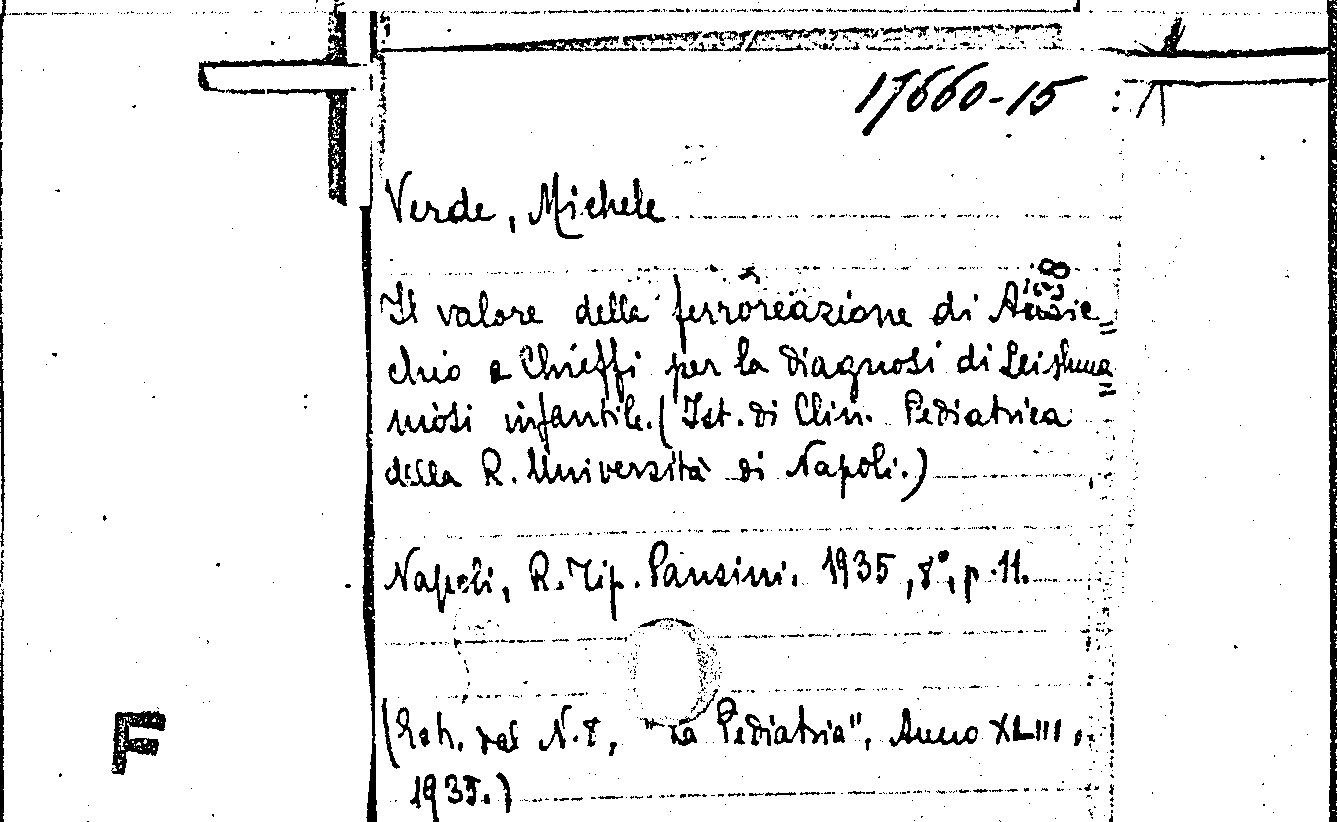 17660-15
Verde, Michele
Il valore della ferroreazione di
chio e Chieffi per la diagnosi di Leishma=
niosi infantile. (Ist. di Clin. Pediatrica
della R. Università di Napoli.)
Napoli, R. Tip. Pansini. 1935, 8°, p. 11.
(Estr. dal N. 8, "La Pediatria", Anno XLIII,
1935.)
F